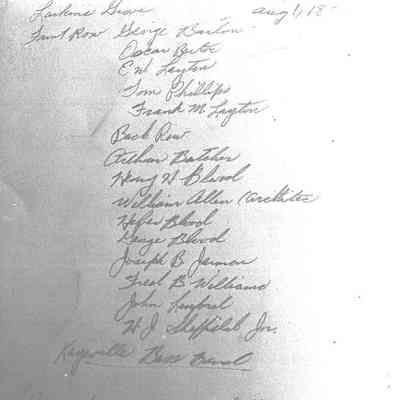 Larkins Grove Aug 1, 18
Front Row George Barton
Oscar Barton
E W Layton
Tom Phillips
Frank M Layton
Back Row
Arthur Batchen
Henry H Blood
William Allen (Architec
Heber Blood
George Blood
Joseph B Jarman
Fred B Williams
John
H J Sheffield, Jr.
Kaysville Bass